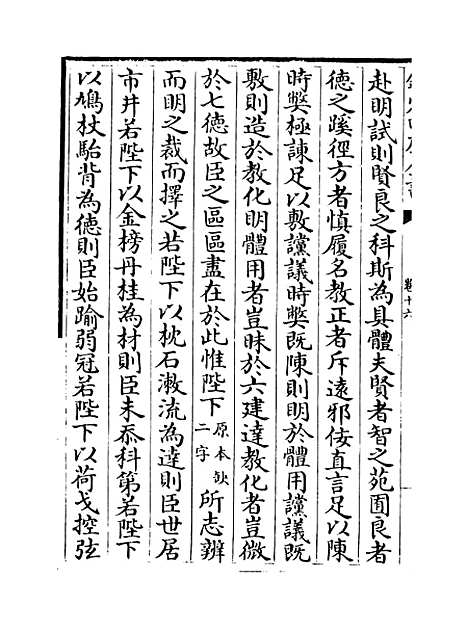 赴明試則賢良之科斯為具體夫賢者智之苑囿良者
德之蹊徑方者慎履名教正者斥遠邪佞直言足以陳
時弊極諫足以敷讜議時弊既陳則明於體用讜議既
敷則造於教化明體用者豈昧於六建達教化者豈微
於七德故臣之區區盡在於此惟陛下原本缺二字所志辨
而明之裁而擇之若陛下以枕石漱流為達則臣世居
市井若陛下以金榜丹桂為材則臣未忝科第若陛下
以鳩杖駘背為德則臣始踰弱冠若陛下以荷戈控弦
卷十六